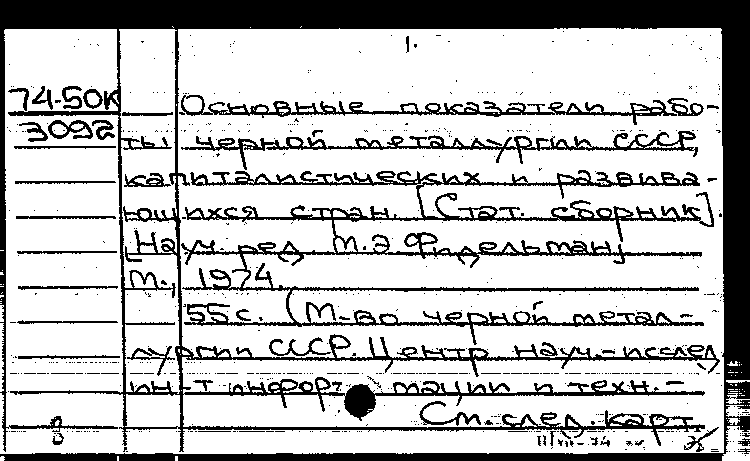 1.
74-50К Основные показатели рабо-
3092 ты черной металлургии СССР,
капиталистических и развива-
ющихся стран. [Стат. сборник].
[Науч. ред. М.Э. Фидельман]
М., 1974.
55 с. (М-во черной метал-
лургии СССР. Центр. науч.-исслед.
ин-т информации и техн.-
См. след. карт.